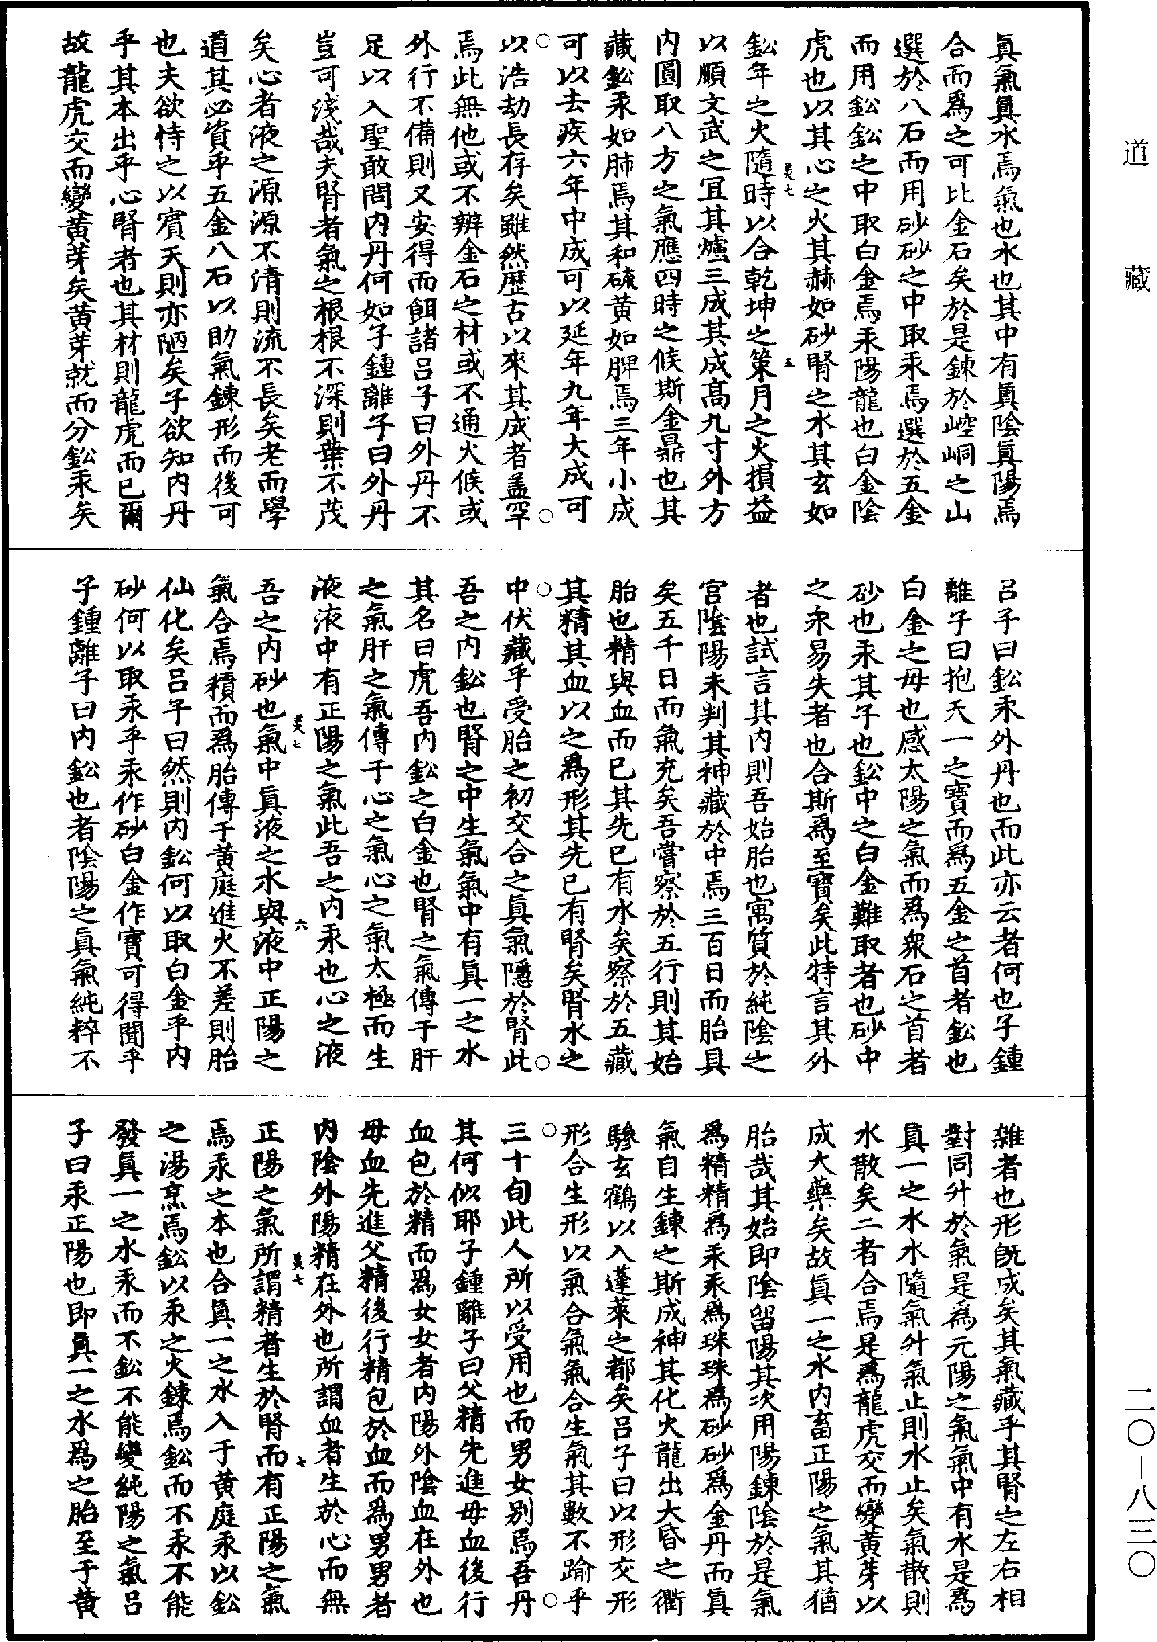 道藏
二〇—八三〇
眞氣眞水焉氣也水也其中有眞陰眞陽焉
合而爲之可比金石矣於是鍊於崆峒之山
選於八石而用砂砂之中取汞焉選於五金
而用鈆鈆之中取白金焉汞陽龍也白金陰
虎也以其心之火其赫如砂腎之水其玄如
鈆年之火隨時以合乾坤之策月之火損益
以順文武之宜其爐三成其成高九寸外方
內圓取八方之氣應四時之候斯金鼎也其
藏鈆汞如肺焉其和硫黄如脾焉三年小成
可以去疾六年中成可以延年九年大成可
以浩劫長存矣雖然歷古以來其成者蓋罕
焉此無他或不辨金石之材或不通火候或
外行不備則又安得而餌諸呂子曰外丹不
足以入聖敢問內丹何如子鍾離子曰外丹
豈可淺哉夫腎者氣之根根不深則葉不茂
矣心者液之源源不清則流不長矣老而學
道其必資乎五金八石以助氣鍊形而後可
也夫欲恃之以賓天則亦陋矣子欲知內丹
乎其本出乎心腎者也其材則龍虎而已爾
故龍虎交而變黄芽矣黄芽就而分鈆汞矣
呂子曰鈆汞外丹也而此亦云者何也子鍾
離子曰抱天一之寶而爲五金之首者鈆也
白金之母也感太陽之氣而爲衆石之首者
砂也汞其子也鈆中之白金難取者也砂中
之汞易失者也合斯爲至寶矣此特言其外
者也試言其內則吾始胎也寓質於純陰之
宮陰陽未判其神藏於中焉三百日而胎具
矣五千日而氣充矣吾嘗察於五行則其始
胎也精與血而已其先已有水矣察於五藏
其精其血以之爲形其先已有腎矣腎水之
中伏藏乎受胎之初交合之眞氣隱於腎此
吾之內鈆也腎之中生氣氣中有眞一之水
其名曰虎吾內鈆之白金也腎之氣傳于肝
之氣肝之氣傳于心之氣心之氣太極而生
液液中有正陽之氣此吾之內汞也心之液
吾之內砂也氣中眞液之水與液中正陽之
氣合焉積而爲胎傳于黄庭進火不差則胎
仙化矣呂子曰然則內鈆何以取白金乎內
砂何以取汞乎汞作砂白金作寶可得聞乎
子鍾離子曰內鈆也者陰陽之眞氣純粹不
雜者也形旣成矣其氣藏乎其腎之左右相
對同升於氣是爲元陽之氣氣中有水是爲
眞一之水水隨氣升氣止則水止矣氣散則
水散矣二者合焉是爲龍虎交而變黄芽以
成大藥矣故眞一之水內畜正陽之氣其猶
胎哉其始卽陰留陽其次用陽鍊陰於是氣
爲精精爲汞汞爲珠珠爲砂砂爲金丹而眞
氣自生鍊之斯成神其化火龍出大昏之衢
驂玄鶴以入蓬萊之都矣呂子曰以形交形
形合生形以氣合氣氣合生氣其數不踰乎
三十旬此人所以受用也而男女别焉吾丹
其何似耶子鍾離子曰父精先進母血後行
血包於精而爲女女者內陽外陰血在外也
母血先進父精後行精包於血而爲男男者
內陰外陽精在外也所謂血者生於心而無
正陽之氣所謂精者生於腎而有正陽之氣
焉汞之本也合眞一之水入于黄庭汞以鈆
之湯烹焉鈆以汞之火鍊焉鈆而不汞不能
發眞一之水汞而不鈆不能變純陽之氣呂
子曰汞正陽也卽眞一之水爲之胎至于黄